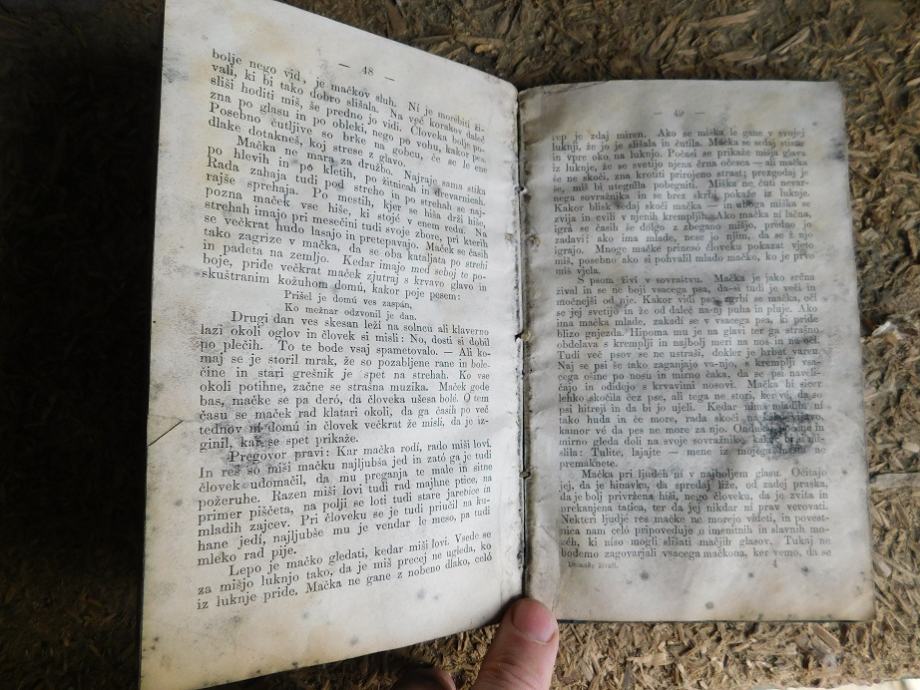 — 48 —
bolje nego vid, je mačkov sluh. Ní je morebiti ži-
vali, ki bi tako dobro slišala. Na več korakov daleč
sliši hoditi miš, še predno jo vidi. Človeka bolje po-
zna po glasu in po obleki, nego po vohu, kakor pes.
Posebno čutljive so brke na gobcu, če se le ene
dlake dotakneš, koj strese z glavo.
Mačka ne mara za družbo. Najraje sama stika
po hlevih in po kletih, po žitnicah in drevarnicah.
Rada zahaja tudi pod streho in po strehah se naj-
rajše sprehaja. Po mestih, kjer se hiša drži hiše,
pozna maček vse hiše, ki stojé v enem redu. Na
strehah imajo pri mesečini tudi svoje zbore, pri kterih
se večkrat hudo lasajo in pretepavajo. Maček se časih
tako zagrize v mačka, da se oba kataljata po strehi
in padeta na zemljo. Kedar imajo med seboj te po-
boje, pride večkrat maček zjutraj s krvavo glavo in
skuštranim kožuhom domú, kakor poje pesem:
Prišel je domú ves zaspán,
Ko mežnar odzvonil je dan.
Drugi dan ves skesan leži na solncu ali klaverno
lazi okoli oglov in človek si misli: No, dosti si dobil
po plečih. To te bode vsaj spametovalo. — Ali ko-
maj se je storil mrak, že so pozabljene rane in bole-
čine in stari grešnik je spet na strehah. Ko vse
okoli potihne, začne se strašna muzika. Maček gode
bas, mačke se pa deró, da človeka ušesa bolé. O tem
času se maček rad klatari okoli, da ga časih po več
tednov ní domú in človek večkrat že misli, da je iz-
ginil, kar se spet prikaže.
Pregovor pravi: Kar mačka rodí, rado miši lovi.
In res so miši mačku najljubša jed in zató ga je tudi
človek udomačil, da mu preganja te male in sitne
požeruhe. Razen miši lovi tudi rad majhne ptice, na
primer piščeta, na polji se loti tudi stare jarebice in
mladih zajcev. Pri človeku se je tudi priučil na ku-
hane jedí, najljubše mu je vendar le meso, pa tudi
mleko rad pije.
Lepo je mačko gledati, kedar miši lovi. Vsede se
za mišjo luknjo tako, da je miš precej ne ugleda, ko
iz luknje pride. Mačka ne gane z nobeno dlako, celó
— 49 —
rep je zdaj miren. Ako se miška le gane v svojej
luknji, že jo je slišala in čutila. Mačka se sedaj stisne
in vpre oko na luknjo. Počasi se prikaže mišja glava
iz luknje, že se svetijo njena črna očesca — ali mačka
še ne skoči, zna krotiti prirojeno strast; prezgodaj je
še, miš bi utegnila pobegniti. Miška ne čuti nevar-
nega sovražnika in se brez skrbi pokaže iz luknje.
Kakor blisk sedaj skoči mačka — in uboga miška se
zvija in cvili v njenih krempljih. Ako mačka ní lačna,
igrá se časih še dolgo z zbegano mišjo, predno jo
zadavi; ako ima mlade, nese jo njim, da se ž njo
igrajo. Mnoge mačke prinesó človeku pokazat vjeto
miš, posebno ako si pohvalil mlado mačko, ko je prvo
miš vjela.
S psom živi v sovraštvu. Mačka je jako srčna
žival in se ne boji vsacega psa, da-si tudi je veči in
močnejši od nje. Kakor vidi psa, zgrbi se mačka, oči
se jej svetijo in že od daleč na-nj puha in pluje. Ako
ima mačka mlade, zakadi se v vsacega psa, ki pride
blizo gnjezda. Hipoma mu je na glavi ter ga strašno
obdelava s kremplji in najbolj meri na nos in na oči.
Tudi več psov se ne ustraši, dokler je hrbet varen.
Naj se psi še tako zaganjajo va-njo, s kremplji vsa-
cega ošine po nosu in mirno čaka, da se psi naveli-
čajo in odidejo s krvavimi nosovi. Mačka bi sicer
lehko skočila čez pse, ali tega ne stori, ker vé, da so
psi hitreji in da bi jo ujeli. Kedar nima mladih ní
tako huda in če more, rada skoči na
kamor vé da pes ne more za njo.
mirno gleda doli na svoje sovražnike, kakor bi si mi-
slila: Tulite, lajajte — mene iz mojega
premaknete.
Mačka pri ljudéh ní v najboljem glasu. Očitajo
jej, da je hinavka, da spredaj liže, od zadej praska,
da je bolj privržena hiši, nego človeku, da je zvita in
prekanjena tatica, ter da jej nikdar ní prav verovati.
Nekteri ljudjé res mačke ne morejo videti, in povest-
nica nam celo pripoveduje o imenitnih in slavnih mo-
žéh, ki niso mogli slišati mačjih glasov. Tukaj ne
bodemo zagovarjali vsacega mačkona, ker vemo, da se
Domače živali. 4